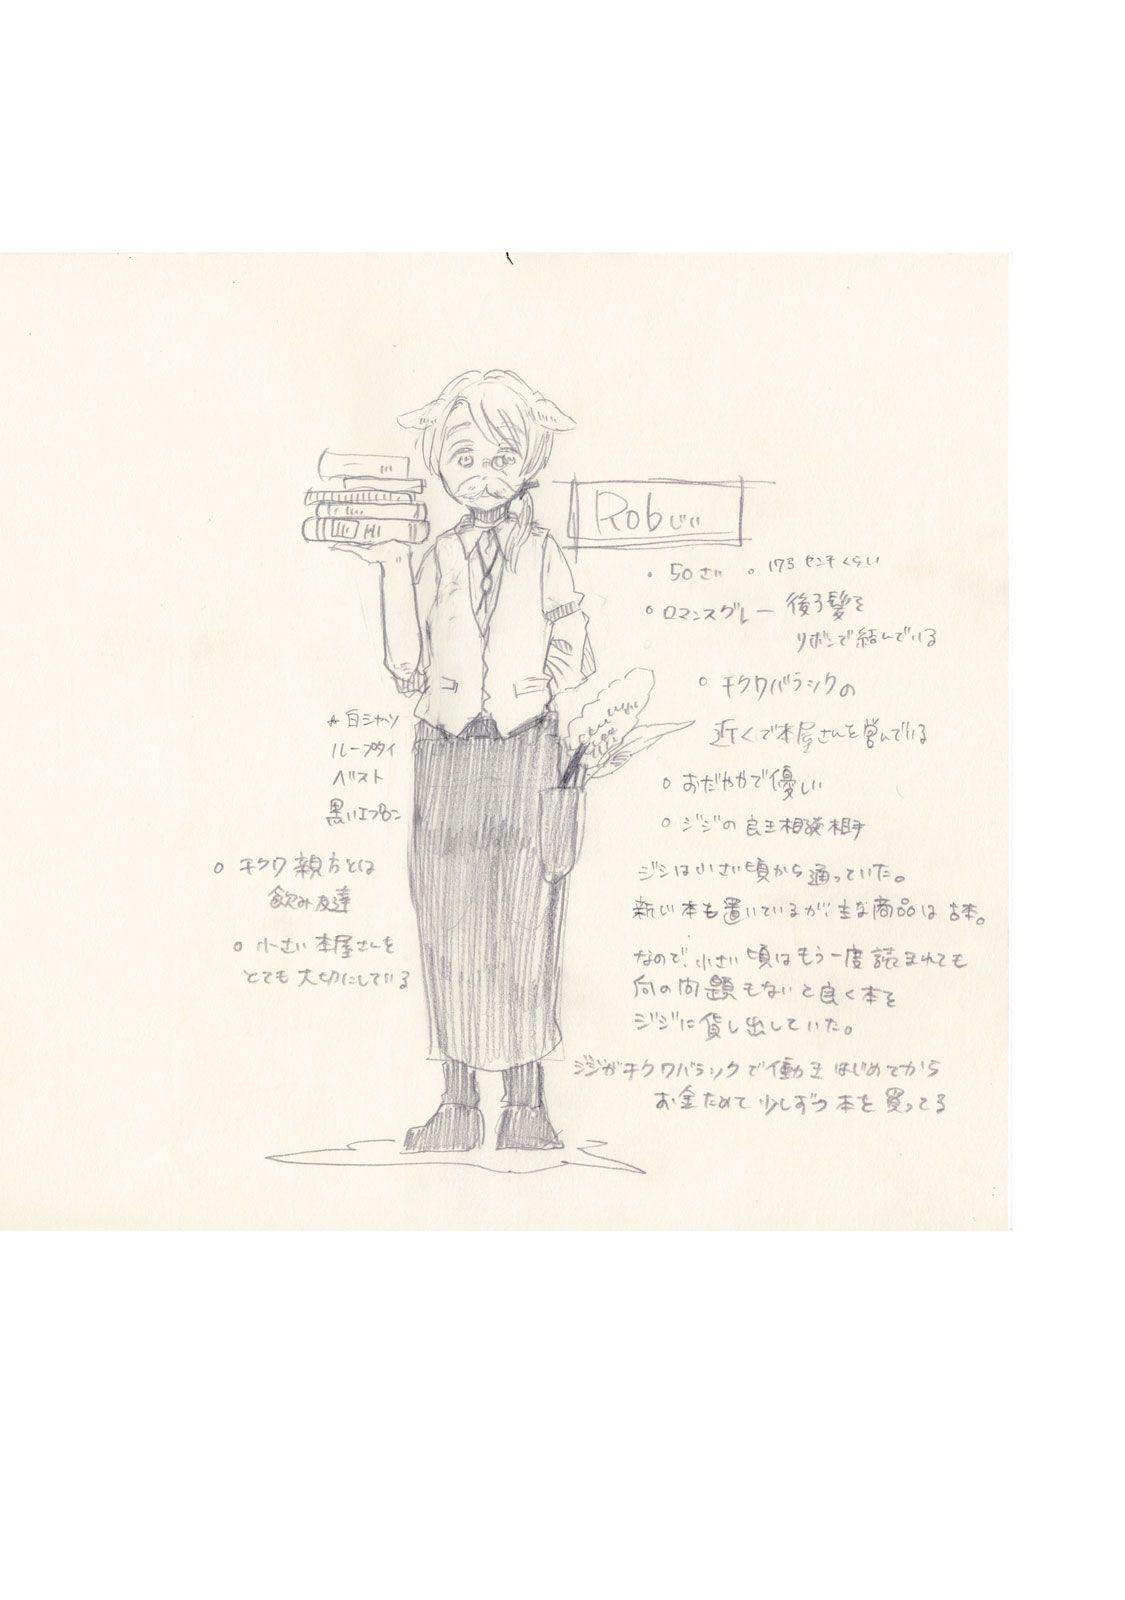 Robじい
・50さい ・173センチくらい
○ロマンスグレー 後ろ髪を
リボンで結んでいる
○チクワバラックの
近くで本屋さんを営んでいる
○おだやかで優しい
○ジジの良き相談相手
ジジは小さい頃から通っていた。
新しい本も置いているが、主な商品は古本。
なので、小さい頃はもう一度読まれても
何の問題もないと良く本を
ジジに貸し出していた。
ジジがチクワバラックで働きはじめてから
お金ためて少しずつ本を買ってる
☆白シャツ
ループタイ
ベスト
黒いエプロン
○チクワ親方とは
飲み友達
○小さい本屋さんを
とても大切にしている